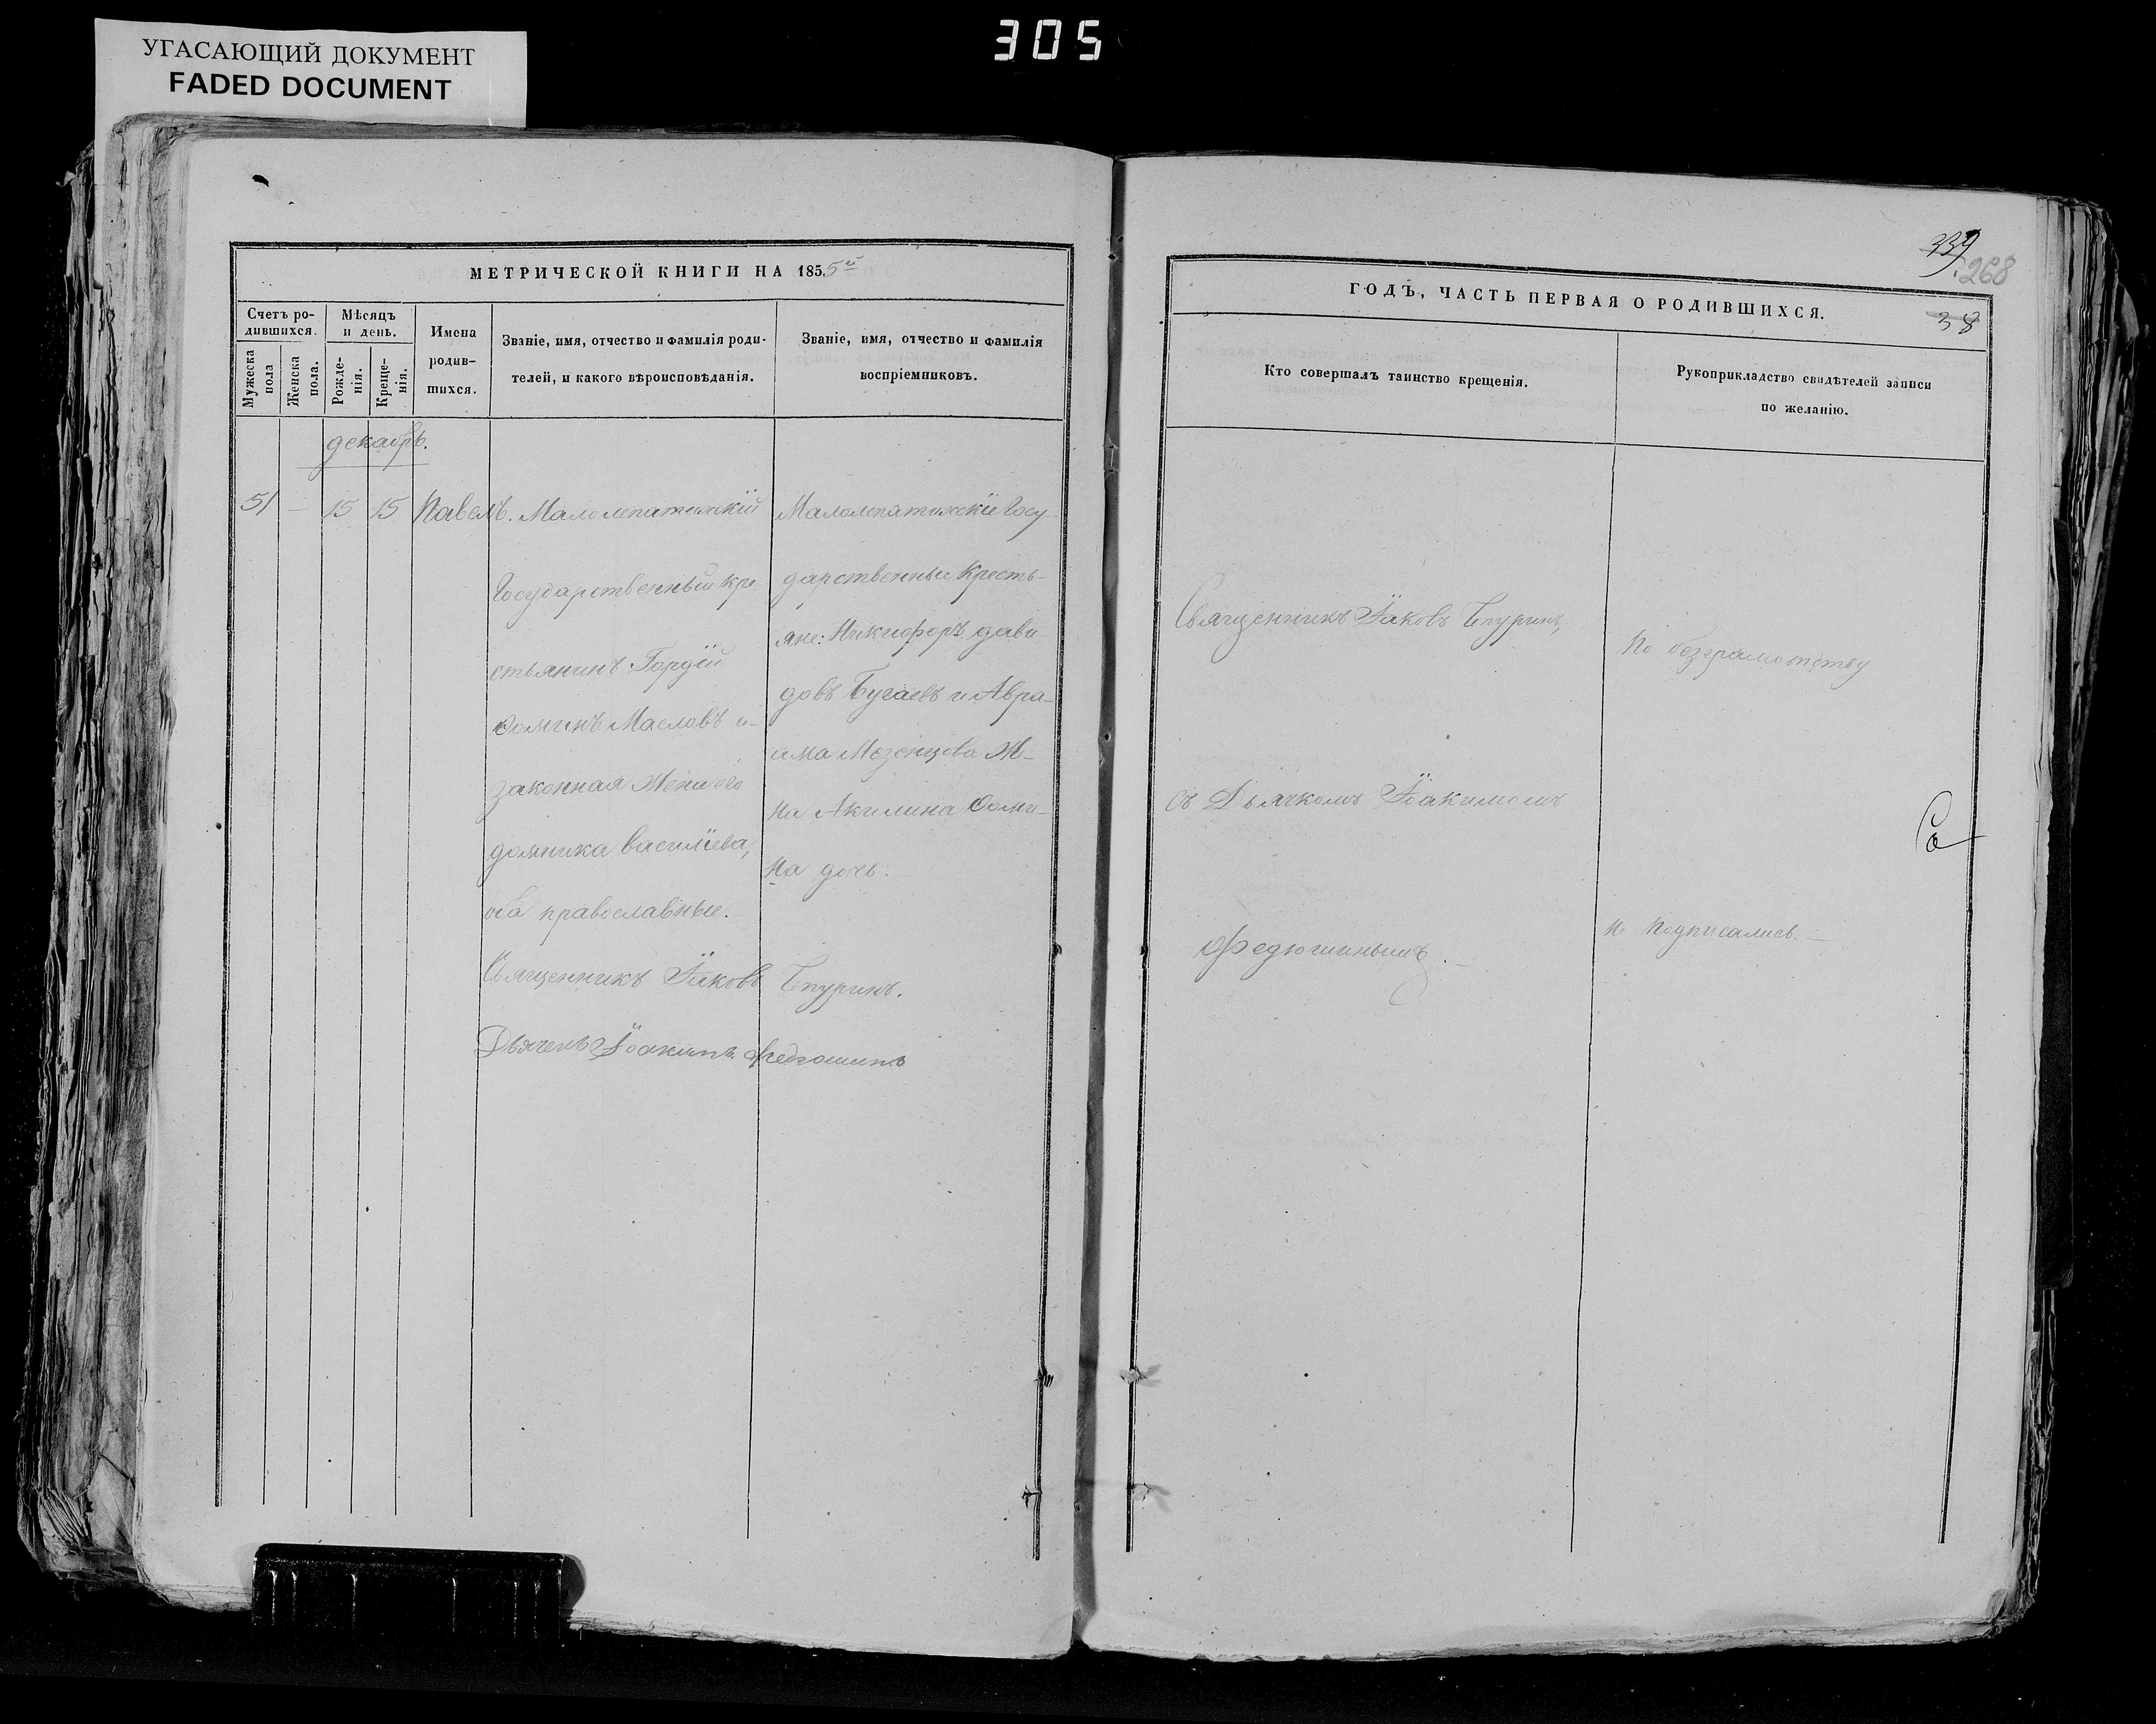 УГАСАЮЩИЙ ДОКУМЕНТ
FADED DOCUMENT
305
МЕТРИЧЕСКОЙ КНИГИ НА 1855й
Счетъ ро-
дившихся.
Мужеска
пола
Женска
пола.
Мѣсяцъ
и день.
Рожде-
нія.
Креще-
нія.
Имена
родив-
шихся.
Званіе, имя, отчество и фамилія роди-
телей, и какого вѣроисповѣданія.
Званіе, имя, отчество и фамилія
воспріемниковъ.
декабрь.
51 — 15 15 Павелъ.
Малолепатихскій
Государственный кре
стьянинъ Гордій
Фоминъ Масловъ и
законная Жена его
домника васильева,
оба православные.
Малолепатихскіе Госу
дарственные Кресть-
яне: Никифоръ дави
довъ Бугаевъ и Авра-
ама Мезенцова Же-
на Акилина Фоми-
на дочь.
Священникъ Іаковъ Чпуринъ.
Дьячекъ Іоакимъ Федюшинъ
339
268
38
ГОДЪ, ЧАСТЬ ПЕРВАЯ О РОДИВШИХСЯ.
Кто совершалъ таинство крещенія.
Рукоприкладство свидѣтелей записи
по желанію.
Священникъ Іаковъ Чпуринъ,
съ Дьячкомъ Іоакимомъ
Федюшинымъ.
По безграмотству
не подписались.